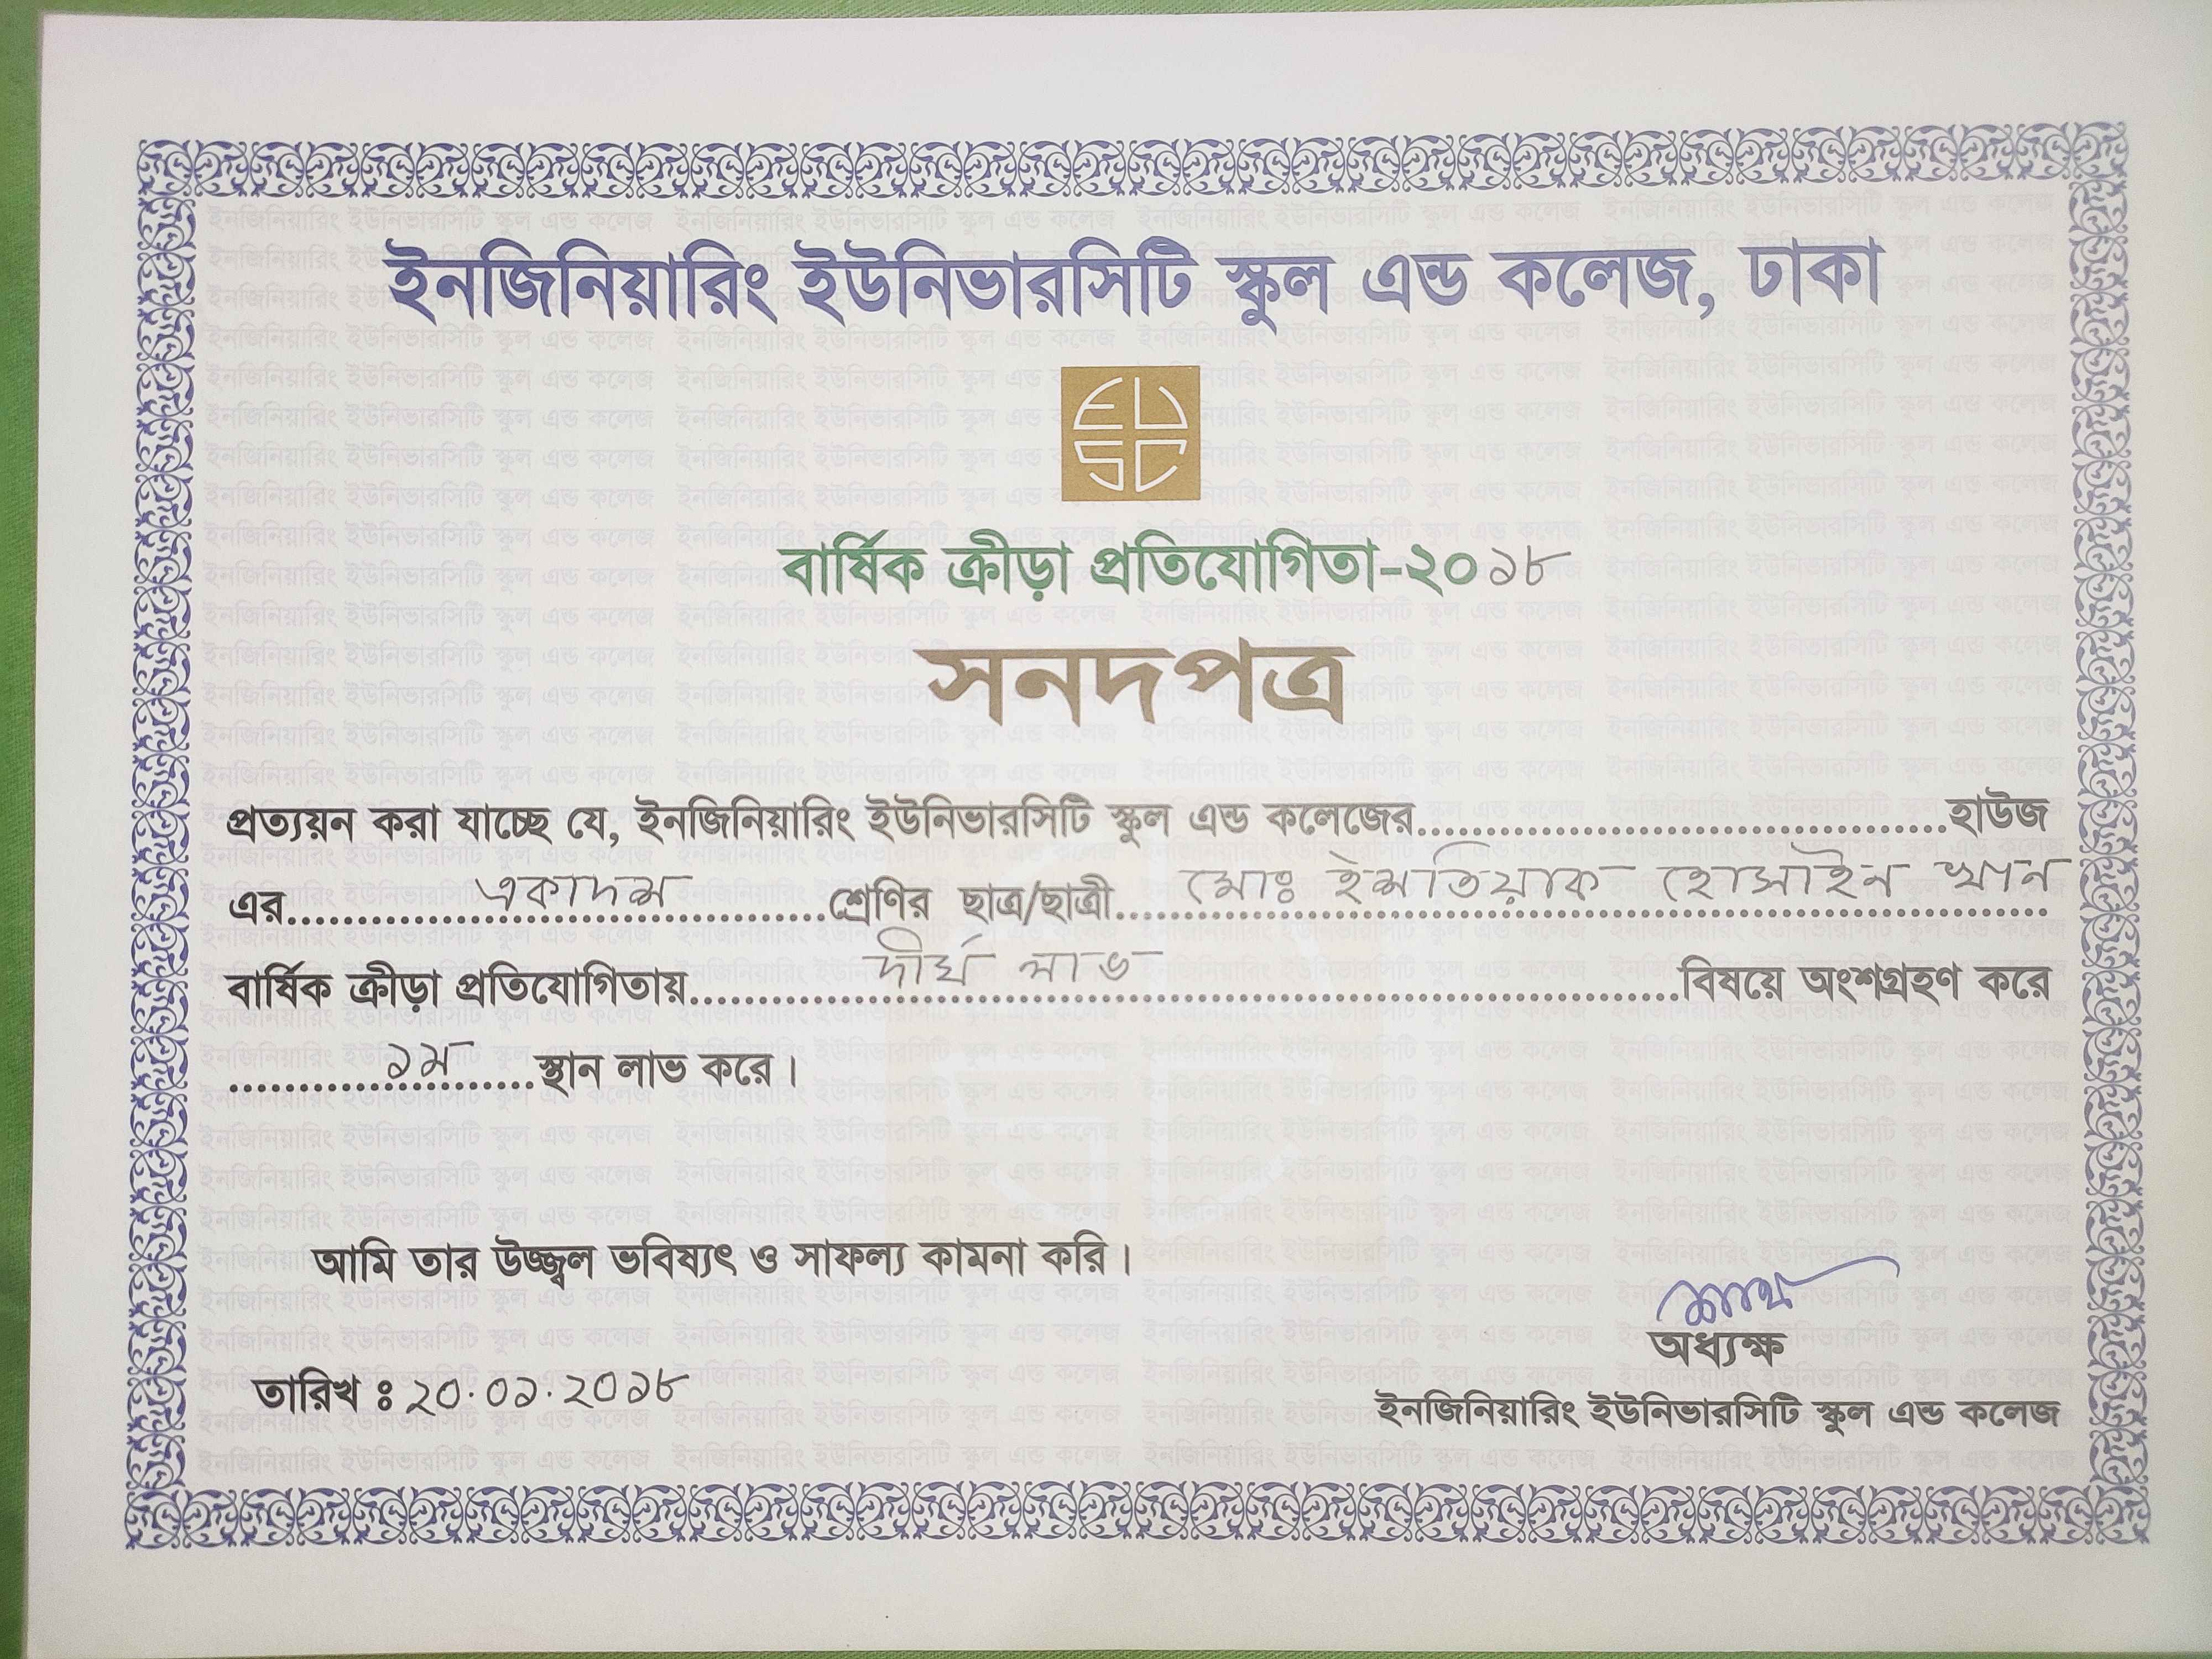 ইনজিনিয়ারিং ইউনিভারসিটি স্কুল এন্ড কলেজ, ঢাকা
EU
SC
বার্ষিক ক্রীড়া প্রতিযোগিতা-২০১৮
সনদপত্র
প্রত্যয়ন করা যাচ্ছে যে, ইনজিনিয়ারিং ইউনিভারসিটি স্কুল এন্ড কলেজের..........হাউজ
এর..........একাদশ..........শ্রেণির ছাত্র/ছাত্রী..........মোঃ ইশতিয়াক হোসাইন খান
বার্ষিক ক্রীড়া প্রতিযোগিতায়..........দীর্ঘ লাফ..........বিষয়ে অংশগ্রহণ করে
..........১ম..........স্থান লাভ করে।
আমি তার উজ্জ্বল ভবিষ্যৎ ও সাফল্য কামনা করি।
অধ্যক্ষ
তারিখ ঃ ২০.০১.২০১৮
ইনজিনিয়ারিং ইউনিভারসিটি স্কুল এন্ড কলেজ